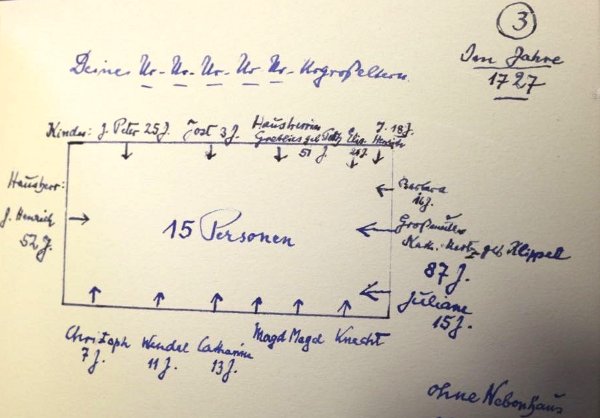 3
Im Jahre
1727
Deines Ur- Ur- Ur- Ur- Ur- Urgroßeltern
Kinder: J. Peter 25 J. Jost 3 J. Hausherrin J. 18 J.
geb. Elis.
51 J.
Hausherr:
J. Henrich
52 J.
Barbara
16 J.
15 Personen
Großmutter
Kath. geb. Klippel
87 J.
Juliane
15 J.
Christoph Wendel Catharina Magd Magd Knecht
7 J. 11 J. 13 J.
ohne Nebenhaus